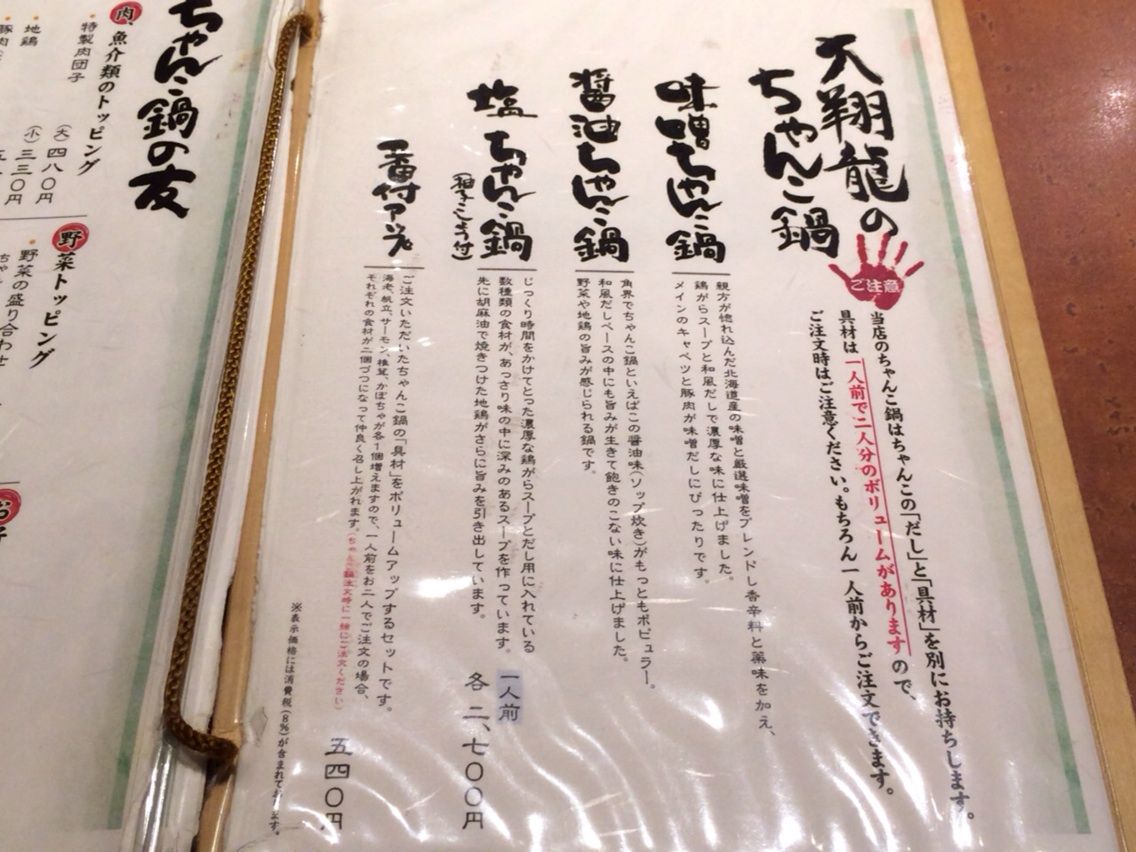 大翔龍の
ちゃんこ鍋
ご注意
当店のちゃんこ鍋はちゃんこの「だし」と「具材」を別にお持ちします。
具材は一人前で二人分のボリュームがありますので、
ご注文時はご注意ください。もちろん一人前からご注文できます。
味噌ちゃんこ鍋
親方が惚れ込んだ北海道産の味噌と厳選味噌をブレンドし香辛料と薬味を加え、
鶏がらスープと和風だしで濃厚な味に仕上げました。
メインのキャベツと豚肉が味噌だしにぴったりです。
醤油ちゃんこ鍋
角界でちゃんこ鍋といえばこの醤油味(ソップ炊き)がもっともポピュラー。
和風だしベースの中にも旨みが生きて飽きのこない味に仕上げました。
野菜や地鶏の旨みが感じられる鍋です。
塩ちゃんこ鍋
(柚子こしょう付)
じっくり時間をかけてとった濃厚な鶏がらスープとだし用に入れている
数種類の食材が、あっさり味の中に深みのあるスープを作っています。
先に胡麻油で焼きつけた地鶏がさらに旨みを引き出しています。
一人前
各 二、七〇〇円
一番付アップ
ご注文いただいたちゃんこ鍋の「具材」をボリュームアップするセットです。
海老、帆立、サーモン、椎茸、かぼちゃが各1個増えますので、一人前をお二人でご注文の場合、
それぞれの食材が二個づつになって仲良く召し上がれます。(ちゃんこ鍋注文時に一緒にご注文ください)
五四〇円
※表示価格には消費税(8%)が含まれております。
ちゃんこ鍋の友
肉、魚介類のトッピング
特製肉団子
(大)四八〇円
(小)三三〇円
地鶏
豚肉
野菜トッピング
野菜の盛り合わせ